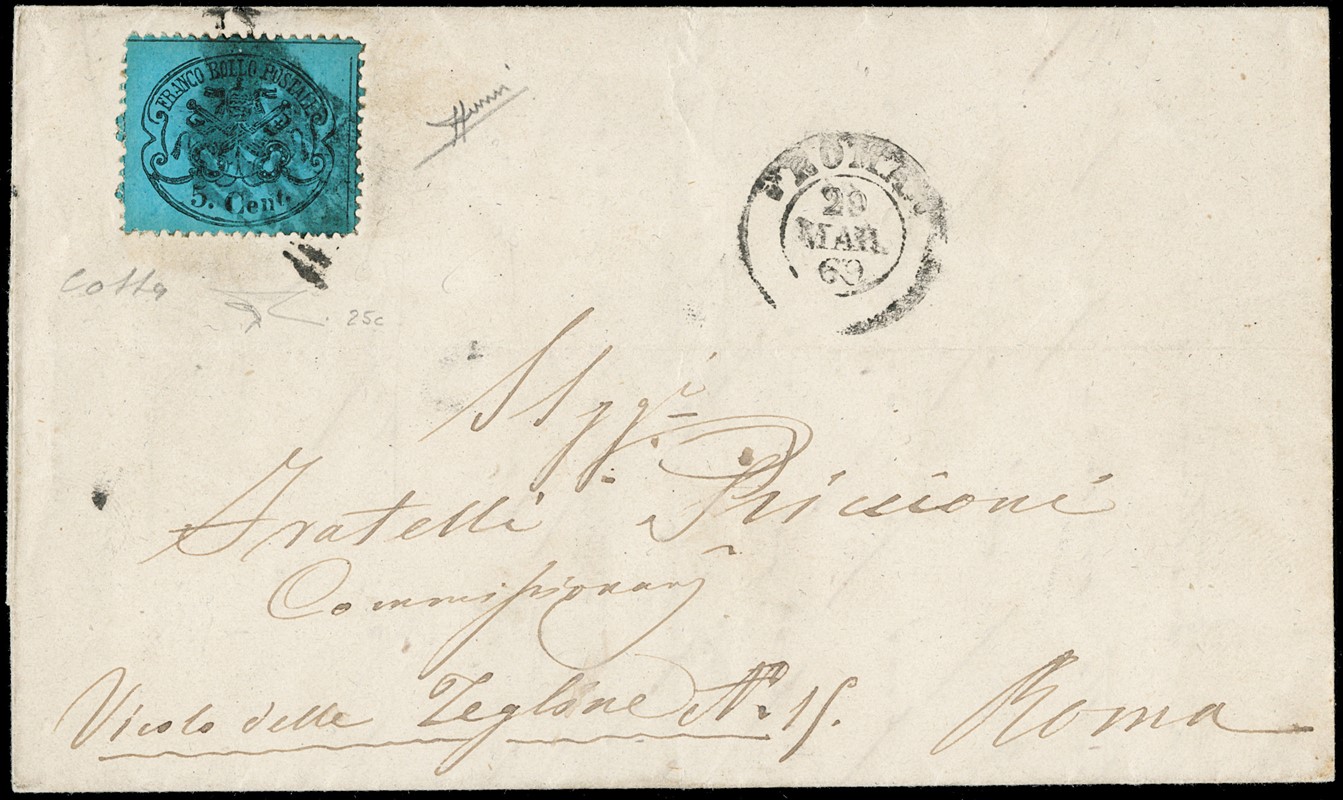 FRANCO BOLLO POSTALE
5. Cent.
ROMA
29
MAR.
69
25c
Sigg.ri
Fratelli Piccioni
Commissionarj
Vicolo delle N.º 15. Roma